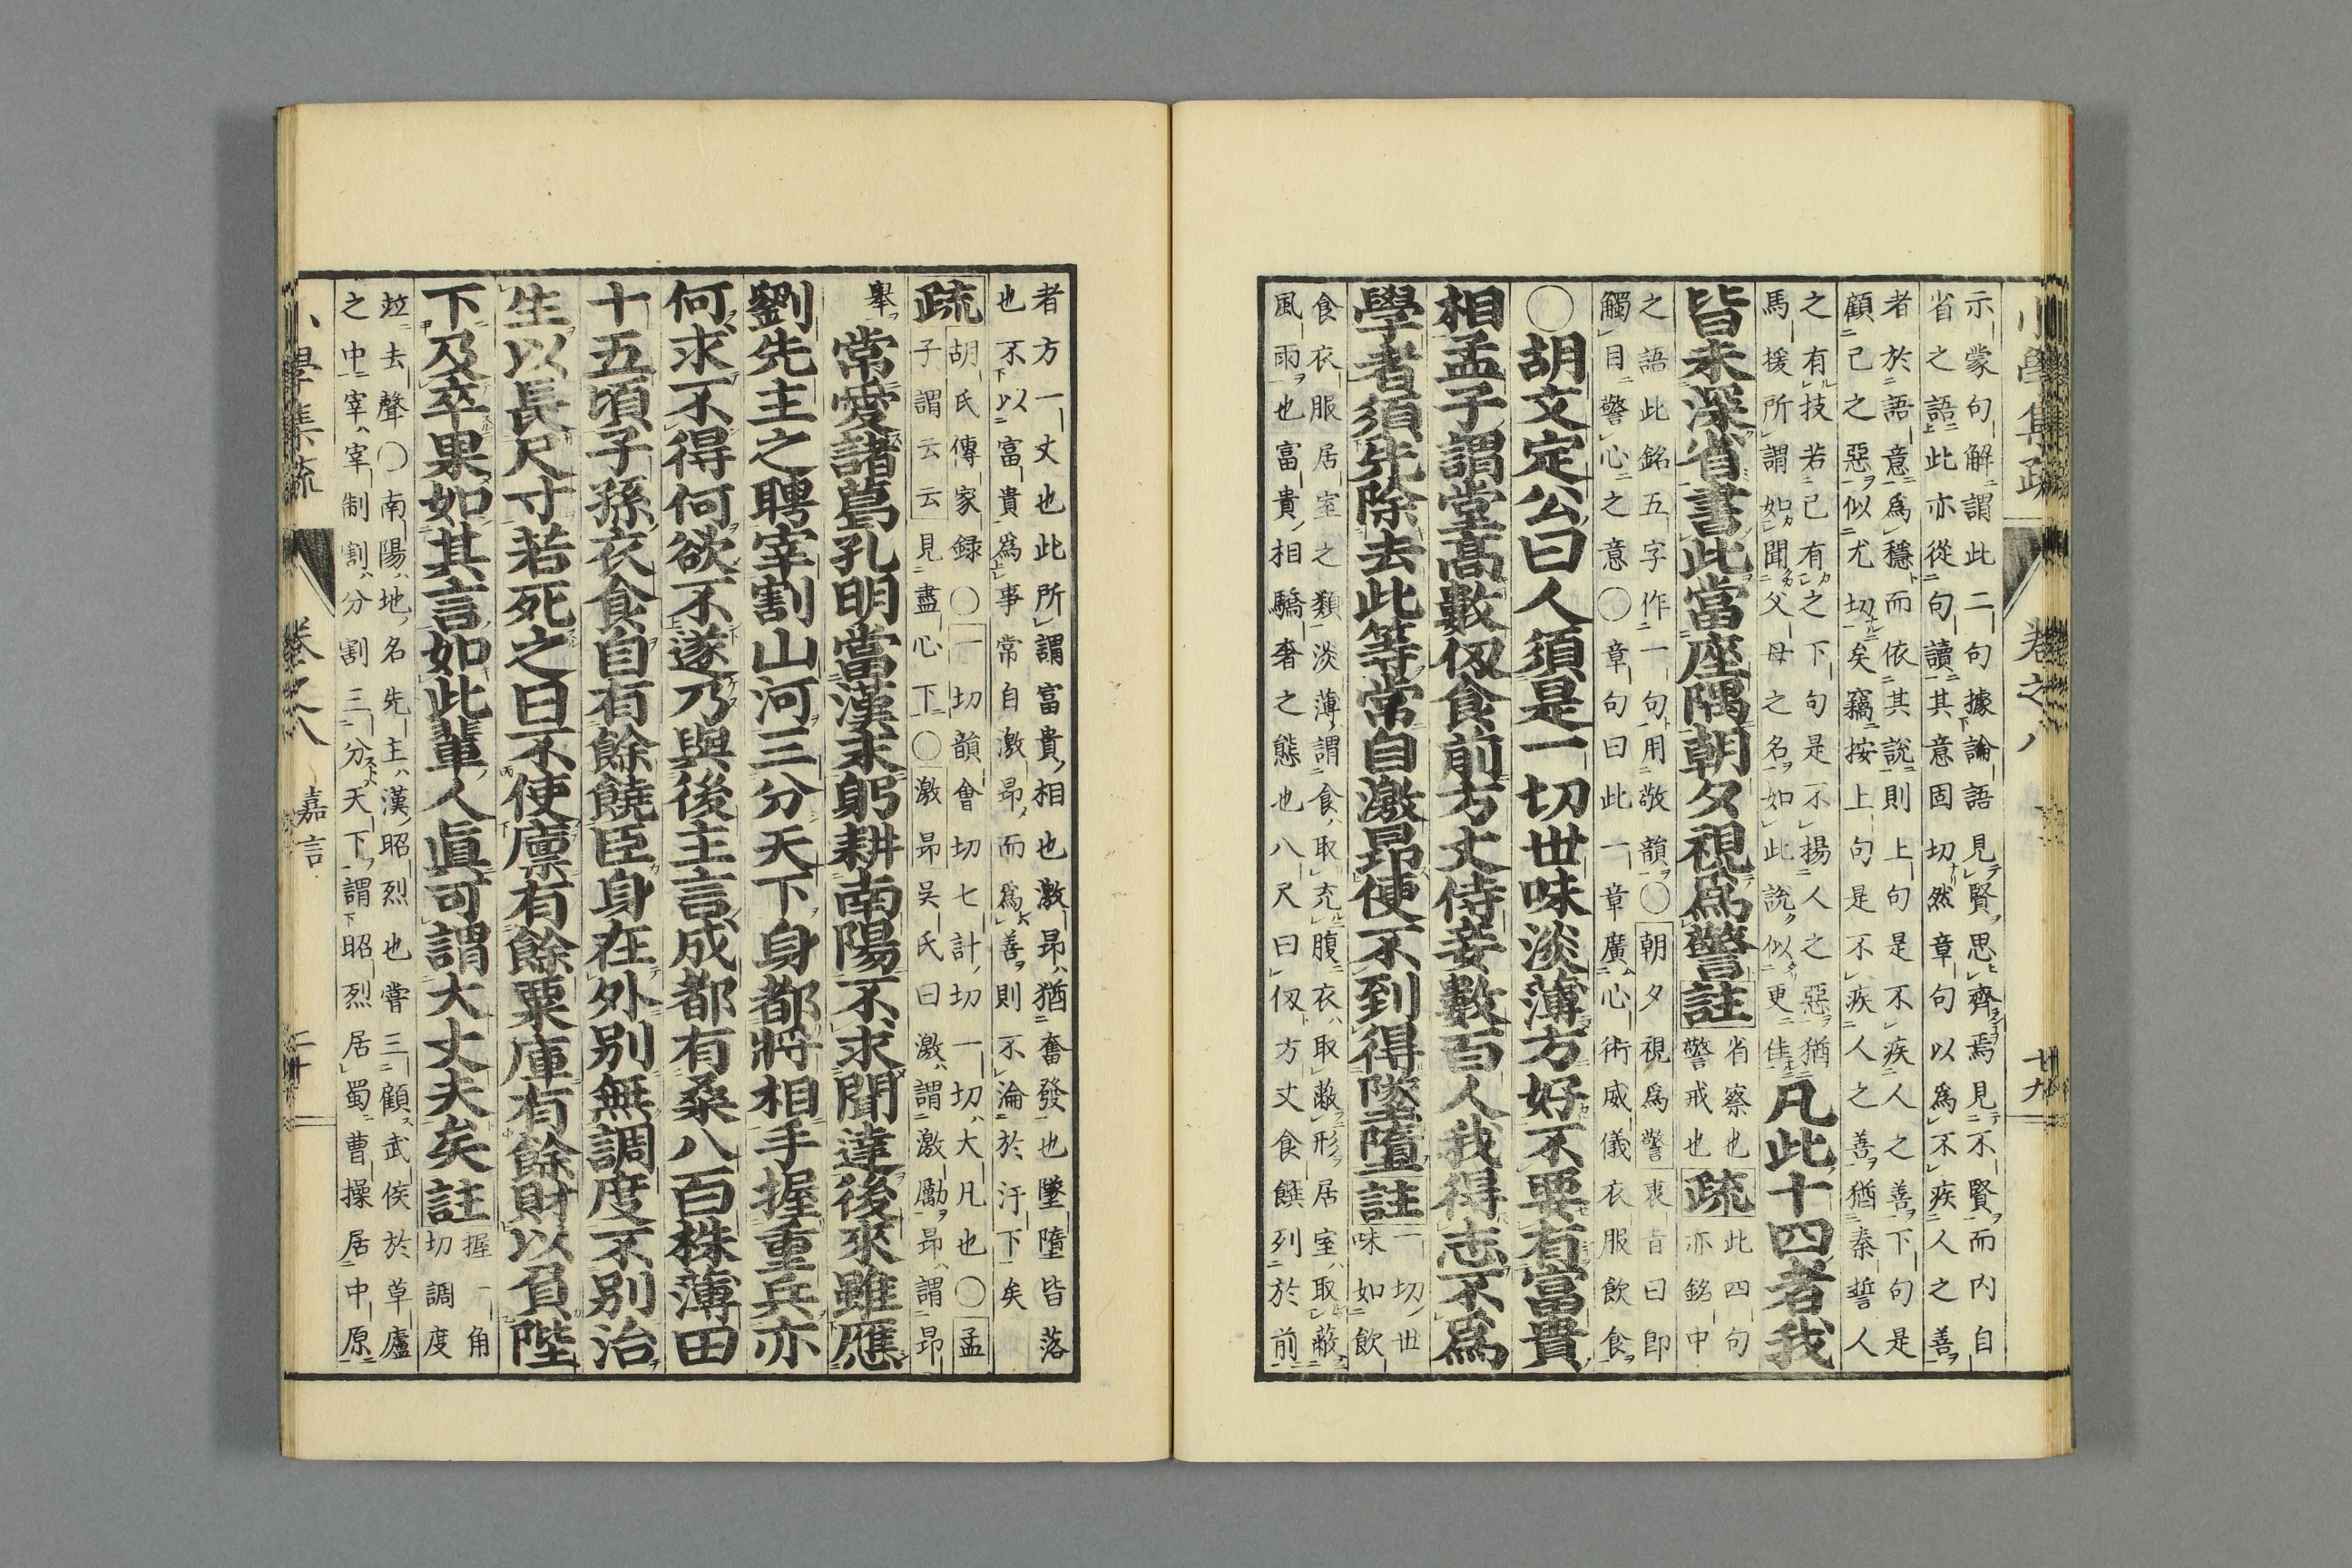 示蒙句解謂此二句據論語見賢思齊焉見不賢而內自
省之語此亦從句讀其意固切然章句以為不疾人之善
者於語意爲穩而依其説則上句是不疾人之善下句是
顧己之惡似尤切矣竊按上句是不疾人之善猶秦誓人
之有技若己有之下句是不揚人之惡猶
馬援所謂如聞父母之名如此説似更佳
凡此十四者我
皆未深省書此當座隅朝夕視爲警註
省察也
警戒也
疏
此四句
亦銘中
之語此銘五字作一句用敬韻〇朝夕視爲警衷旨曰卽
觸目警心之意〇章句曰此一章廣心術威儀衣服飲食
〇胡文定公曰人須是一切世味淡薄方好不要有富貴
相孟子謂堂高數仭食前方丈侍妾數百人我得志不爲
學者須先除去此等常自激昻便不到得墜墮註
一切世
味如飲
食衣服居室之類淡薄謂食取充腹衣取蔽形居室取蔽
風雨也富貴相驕奢之態也八尺曰仭方丈食饌列於前
小學集疏
卷之八
廿九
者方一丈也此所謂富貴相也激昻猶奮發也墜墮皆落
也不以富貴爲事常自激昻而爲善則不淪於汙下矣
疏
胡氏傳家録〇一切韻會切七計切一切大凡也〇孟
子謂云云見盡心下〇激昻吳氏曰激謂激勵昻謂昻
舉
常愛諸葛孔明當漢末躬耕南陽不求聞達後來雖應
劉先主之聘宰割山河三分天下身都將相手握重兵亦
何求不得何欲不遂乃與後主言成都有桑八百株薄田
十五頃子孫衣食自有餘饒臣身在外別無調度不別治
生以長尺寸若死之日不使廩有餘粟庫有餘財以負陛
下及卒果如其言如此輩人眞可謂大丈夫矣註
握一角
切調度
竝去聲〇南陽地名先主漢昭烈也嘗三顧武侯於草廬
之中宰宰制割分割三分天下謂昭烈居蜀曹操居中原
小學集疏
卷之八
嘉言
三十